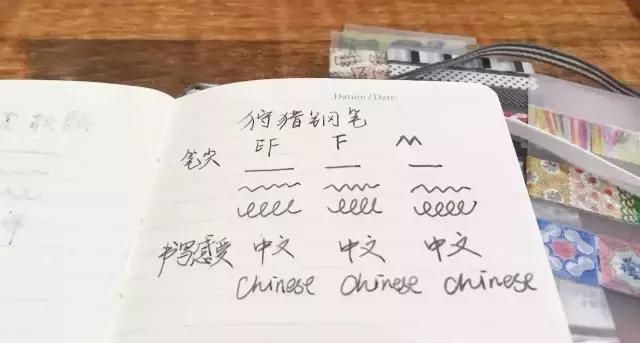 Datum/Date:
狩猎钢笔
笔尖 EF F M
书写感受 中文 中文 中文
Chinese Chinese Chinese